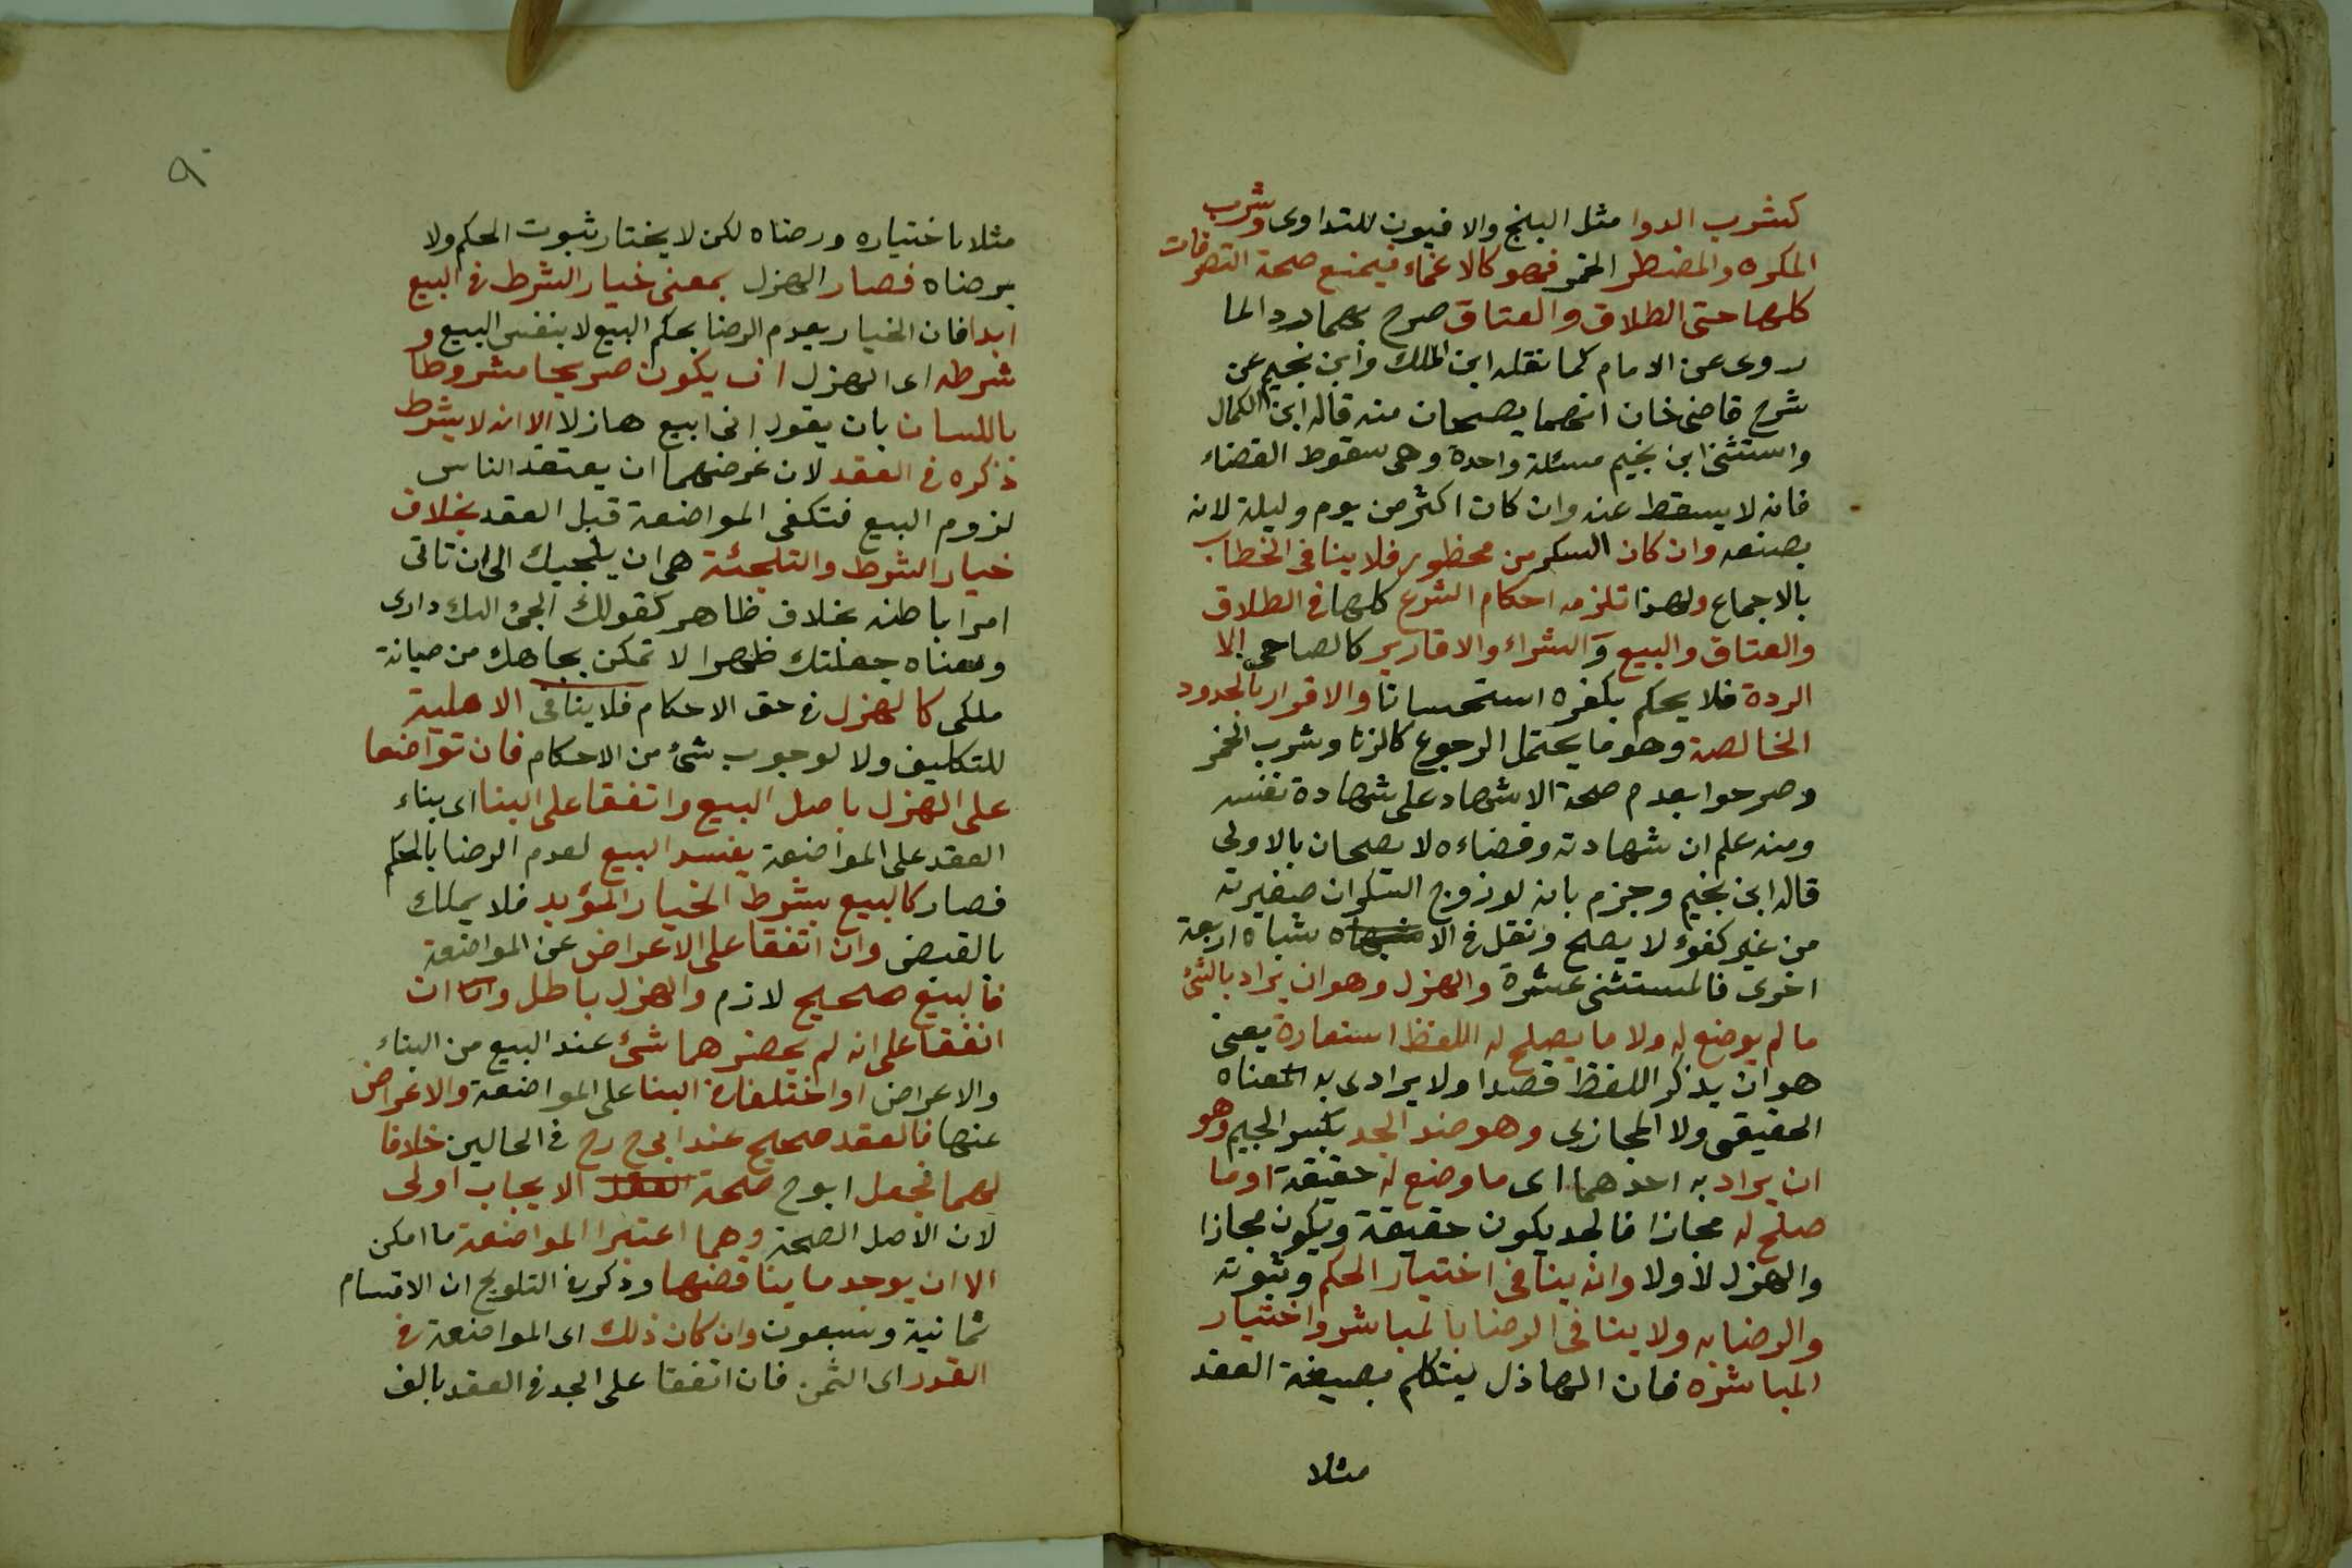 كشرب الدوا مثل البنج والافيون للتداوى وشرب
المكره والمضطر الخمر فهو كالاغماء فيمنع صحة التصرفات
كلها حتى الطلاق والعتاق صرح بهما ردا لما
روى عن الامام كما نقله ابن الملك وابن نجيم عن
شرح قاضى خان انهما يصحان منه قاله ابن الكمال
واستثنى ابن نجيم مسئلة واحدة وهى سقوط القضاء
فانه لا يسقط عنه وان كان اكثر من يوم وليلة لانه
بصنعه وان كان السكر من محظور فلا ينافى الخطاب
بالاجماع ولهذا تلزمه احكام الشرع كلها فى الطلاق
والعتاق والبيع والشراء والاقارير كالصاحى الا
الردة فلا يحكم بكفره استحسانا والاقرار بالحدود
الخالصة وهو ما يحتمل الرجوع كالزنا وشرب الخمر
وصرحوا بعدم صحة الاشهاد على شهادة نفسه
ومنه علم ان شهادته وقضاءه لا يصحان بالاولى
قاله ابن نجيم وجزم بانه لو زوج السكران صغيرته
من غير كفوء لا يصلح ونقل فى الاشباه اربعة
اخرى فالمستثنى عشرة والهزل وهو ان يراد بالشئ
ما لم يوضع له ولا ما يصلح له اللفظ استعارة يعنى
هو ان يذكر اللفظ قصدا ولا يراد به معناه
الحقيقى ولا المجازى وهو ضد الجد بكسر الجيم وهو
ان يراد به احدهما اى ما وضع له حقيقة او ما
صلح له مجازا فالجد يكون حقيقة ويكون مجازا
والهزل لا ولا وانه ينافى اختيار الحكم وثبوته
والرضا به ولا ينافى الرضا بالمباشر واختيار
المباشره فان الهاذل يتكلم بصيغة العقد
مثلا
٩٠
مثلا باختياره ورضاه لكن لا يختار ثبوت الحكم ولا
يرضاه فصار الهزل بمعنى خيار الشرط فى البيع
ابدا فان الخيار يعدم الرضا بحكم البيع لا بنفس البيع و
شرطه اى الهزل ان يكون صريحا مشروطا
باللسان بان يقول انى ابيع هازلا الا انه لا يشرط
ذكره فى العقد لان غرضهما ان يعتقد الناس
لزوم البيع فتكفى المواضعة قبل العقد بخلاف
خيار الشرط والتلجئة هى ان يلجيك الى ان تاتى
امرا باطنه بخلاف ظاهر كقولك الجئ اليك دارى
ومعناه جعلتك ظهرا لا تمكن بجاهك من صيانة
ملكى كالهزل فى حق الاحكام فلا ينافى الاهلية
للتكليف ولا لوجوب شئ من الاحكام فان تواضعا
على الهزل باصل البيع واتفقا على البنا اى بناء
العقد على المواضعة يفسد البيع لعدم الرضا بالحكم
فصار كالبيع بشرط الخيار المؤبد فلا يملك
بالقبض وان اتفقا على الاعراض عن المواضعة
فالبيع صحيح لازم والهزل باطل وان
اتفقا على انه لم يحضرهما شئ عند البيع من البناء
والاعراض او اختلفا فى البنا على المواضعة والاعراض
عنها فالعقد صحيح عند ابى ح رح فى الحالين خلافا
لهما فجعل ابو ح صحة الايجاب اولى
لان الاصل الصحة وهما اعتبرا المواضعة ما امكن
الا ان يوجد ما يناقضها وذكر فى التلويح ان الاقسام
ثمانية وسبعون وان كان ذلك اى المواضعة فى
القدر اى الثمن فان اتفقا على الجد فى العقد بالف